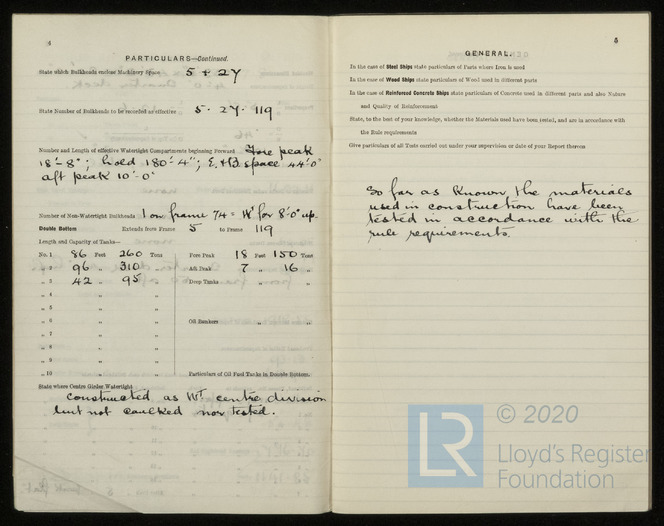 4
PARTICULARS—Continued.
State which Bulkheads enclose Machinery Space 5 + 27
State Number of Bulkheads to be recorded as effective 5 · 27 · 119
Number and Length of effective Watertight Compartments beginning Forward Fore peak
18'-8"; hold 180'-4"; E.+B. space 44'-0"
aft peak 10'-0"
Number of Non-Watertight Bulkheads 1 on frame 74 = Wt for 8'-0" up.
Double Bottom Extends from Frame 5 to Frame 119
Length and Capacity of Tanks—
No. 1 86 Feet 260 Tons Fore Peak 18 Feet 150 Tons
„ 2 96 „ 310 „ Aft Peak 7 „ 16 „
„ 3 42 „ 95 „ Deep Tanks „ „
„ 4 „ „
„ 5 „ „
„ 6 „ „ Oil Bunkers „ „
„ 7 „ „
„ 8 „ „
„ 9 „ „
„ 10 „ „ Particulars of Oil Fuel Tanks in Double Bottom.
State where Centre Girder Watertight
Constructed as Wt. centre division
but not caulked nor tested.
5
GENERAL.
In the case of Steel Ships state particulars of Parts where Iron is used
In the case of Wood Ships state particulars of Wood used in different parts
In the case of Reinforced Concrete Ships state particulars of Concrete used in different parts and also Nature
and Quality of Reinforcement
State, to the best of your knowledge, whether the Materials used have been tested, and are in accordance with
the Rule requirements
Give particulars of all Tests carried out under your supervision or date of your Report thereon
So far as known the materials
used in construction have been
tested in accordance with the
rule requirements.
© 2020
LR
Lloyd's Register
Foundation